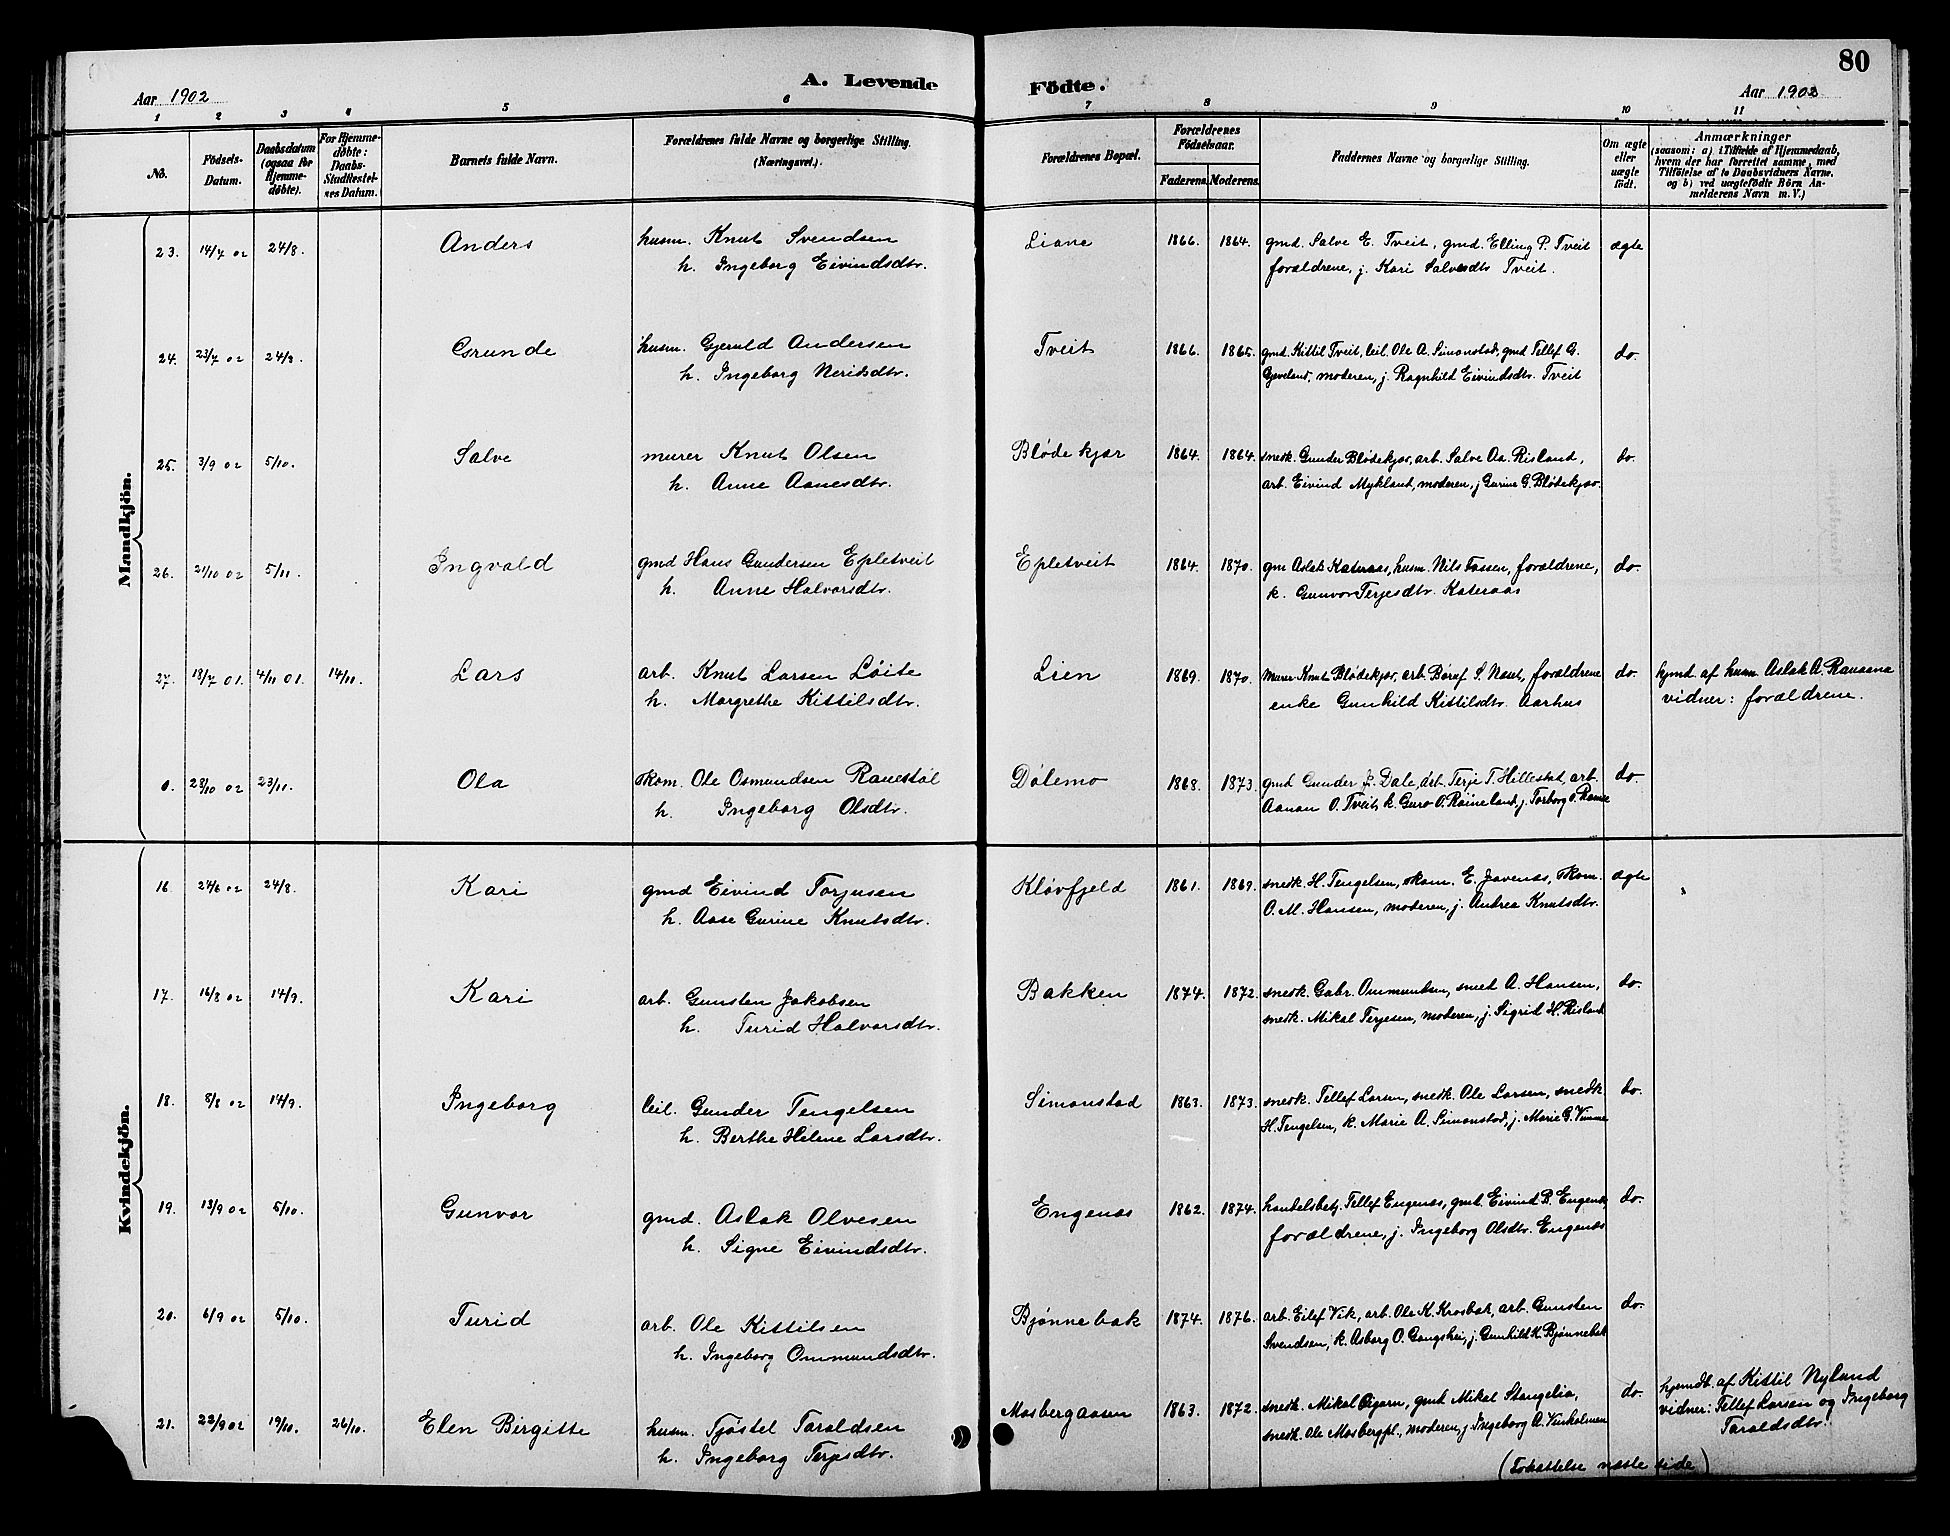 80
A. Levende Födte.
Aar 1902
Aar 1902
1 2 3 4 5 6 7 8 9 10 11
No.
Födsels-
Datum.
Daabsdatum
(ogsaa for
Hjemme-
døbte).
For Hjemme-
døbte:
Daabs-
Stadfæstel-
ses Datum.
Barnets fulde Navn.
Forældrenes fulde Navne og borgerlige Stilling.
(Næringsvei.)
Forældrenes Bopæl.
Forældrenes
Födselsaar.
Faderens. Moderens.
Faddernes Navne og borgerlige Stilling.
Om ægte
eller
uægte
födt.
Anmærkninger
(saasom: a) i Tilfælde af Hjemmedaab,
hvem der har forrettet samme, med
Tilføielse af to Daabsvidners Navne,
og b) ved uægtefødte Börn An-
melderens Navn m. V.)
Mandkjön.
23. 14/7 02 24/8. Anders husm. Knut Svendsen Liane 1866. 1864. gmd. Salve E. Tveit, gmd. Elling P. Tveit ægte
h. Ingeborg Eivindsdtr. forældrene, j. Kari Salvesdtr Tveit.
24. 23/7 02 24/8. Grunde husm. Gjeruld Andersen Tveit 1866. 1865. gmd. Kittil Tveit, leil. Ole A. Simonstad, gmd Tellef G. do.
h. Ingeborg Neridsdtr. Gjeveland, moderen, j. Ragnhild Eivindsdtr. Tveit
25. 3/9 02 5/10. Salve murer Knut Olsen Blødekjær 1864. 1864. snedk. Gunder Blødekjær, arb. Salve Aa. Risland, do.
h. Anne Aanesdtr. arb. Eivind Mykland, moderen, j Gurine G. Blødekjær.
26. 21/10 02 5/11. Ingvald gmd Hans Gundersen Epletveit Epletveit 1864. 1870. gm Aslak Kateraas, husm. Nils Fossen, forældrene, do.
h. Anne Halvorsdtr. k. Gunvor Terjesdtr. Kateraas
27. 18/7 01. 4/11 01. 14/11. Lars arb. Knut Larsen Løite Lien 1869. 1870. murer Knut Blødekjær, arb. Børuf S. Naut, forældrene do. hjmd. af husm Aslak A. Rauaana
h. Margrethe Kittilsdtr. enke Gunhild Kittilsdtr. Aarhus vidner: forældrene.
0. 28/10 02 23/11. Ola skom. Ole Osmundsen Rauestøl Dølemo 1868. 1873. gmd Gunder J. Dale, arb. Terje T. Hillestad, arb. do.
h. Ingeborg Olsdtr. Aanan O. Tveit, k. Guro O. Raineland, j. Torborg O.
Kvindekjön.
16. 24/6 02 24/8. Kari gmd Eivind Torjusen Kløvfjeld 1861. 1869. snedk. H. Tengelsen, skom. E. Jovenæs, skom. ægte
h. Aase Gurine Knutsdtr. O. M. Hansen, moderen, j. Andrea Knutsdtr.
17. 16/8 02 14/9. Kari arb. Gunsten Jakobsen Bakken 1874. 1872. snedk. Gabr. Ommundsen, smed A. Hansen, do.
h. Turid Halvorsdtr. snedk. Mikal Terjesen, moderen, j. Sigrid H. Risland
18. 8/8 02 14/9. Ingeborg leil. Gunder Tengelsen Simonstad 1863. 1873. snedk. Tellef Larsen, snedk. Ole Larsen, snedk do.
h. Berthe Helene Larsdtr. H. Tengelsen, k. Marie A. Simonstad, j. Marie G. Vimme
19. 13/9 02 5/10. Gunvor gmd. Aslak Olvesen Engenæs 1862. 1874. handelsbetj. Tellef Engenæs, gmd. Eivind B. Engenæs do.
h. Signe Eivindsdtr. forældrene, j. Ingeborg Olsdtr. Engenæs
20. 6/9 02 5/10. Turid arb. Ole Kittilsen Bjønnebak 1874. 1876. arb. Eilef Vik, arb. Ole K. Krosbak, arb. Gunsten do.
h. Ingeborg Ommundsdtr. Svendsen, k. Asborg O. Gangshei, j. Gunhild K. Bjønnebak
21. 22/9 02 19/10. 26/10. Elen Birgitte husm. Tjøstel Taraldsen Mosbergaasen 1863. 1872. snedk. Mikal gmd Mikal Stangelia, do. hjemdb. af Kittil Nylund
h. Ingeborg Terjesdtr. snedk. Ole Mosbergpl., moderen, j. Ingeborg A. Vinholmen vidner: Tellef Larsen og Ingeborg
Taraldsdtr.
(Fortsættelse næste side)